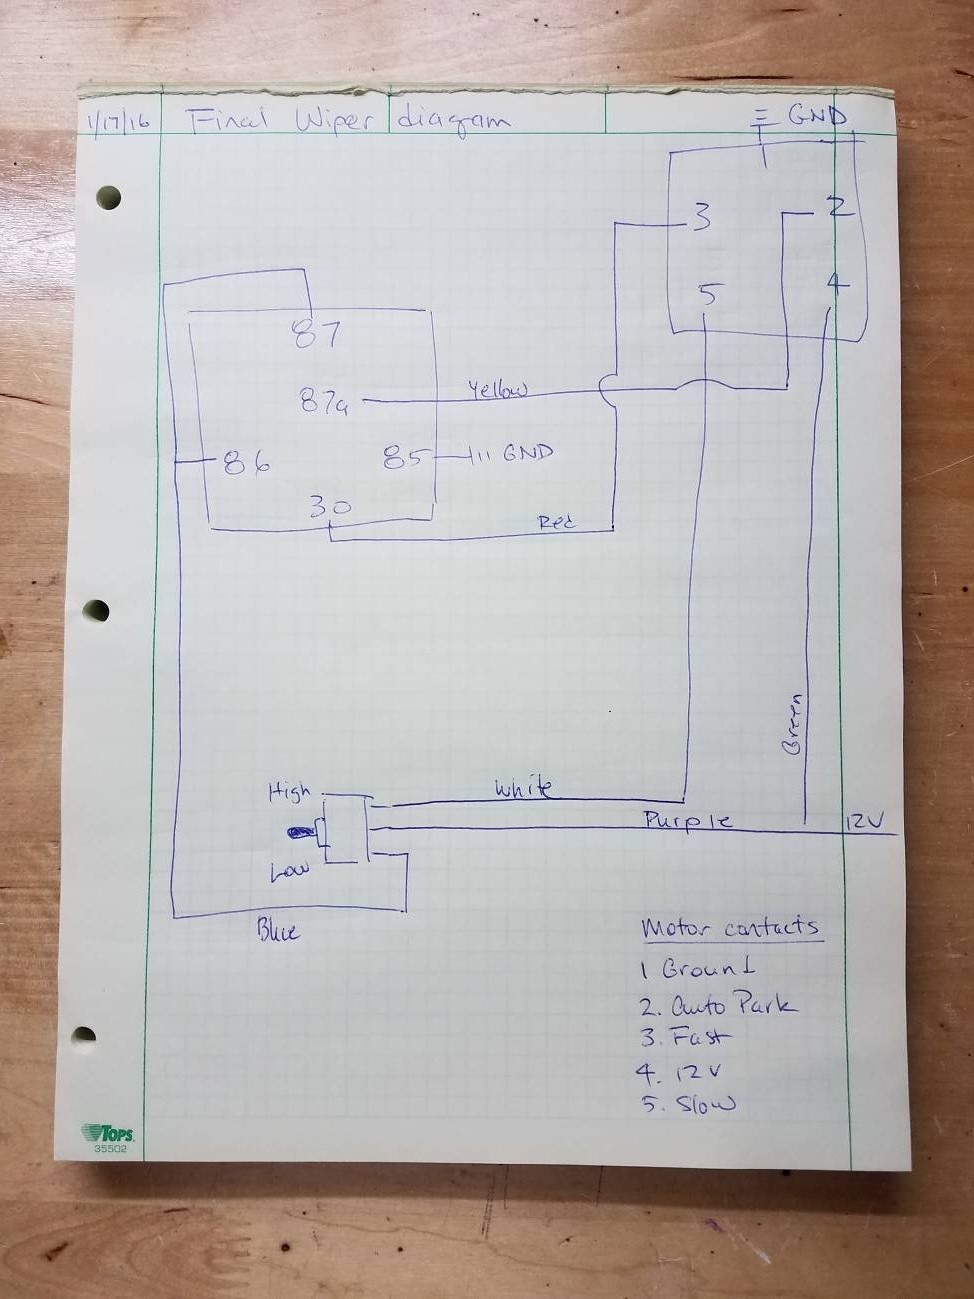 1/17/16 Final Wiper diagram
GND
3 2
5 4
87
87a
Yellow
86
85
GND
30
Red
Green
High
White
Purple
12V
Low
Blue
Motor contacts
1 Ground
2. Auto Park
3. Fast
4. 12V
5. Slow
TOPS
35502